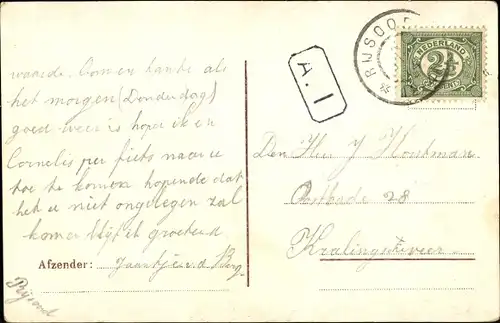 waarde Oom en tante als
het morgen (Donderdag)
goed weer is hopen ik en
Cornelis per fiets naar u
toe te komen hopende dat
het u niet ongelegen zal
komen blijf ik groetend
Afzender: Jaantje v. d. Berg
Rijsoord
A. 1
RIJSOORD
NEDERLAND
2½
CENT
Den Heer J Houtman
Oostkade 28
Kralingscheveer